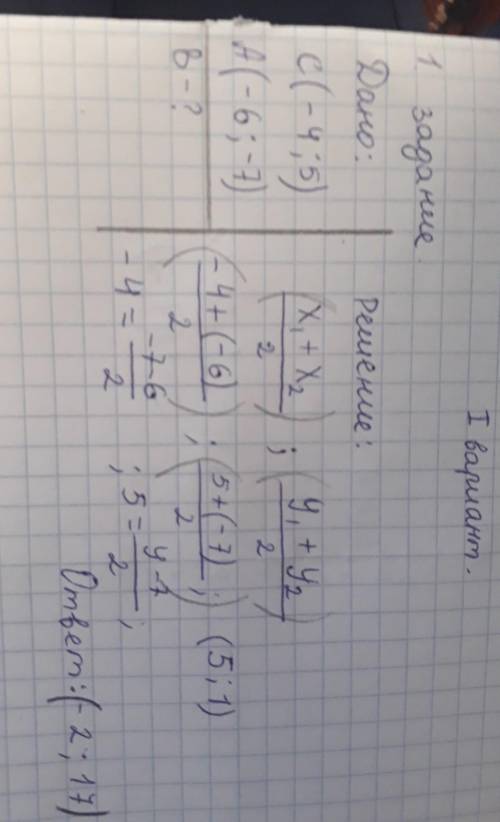 I вариант.
1 задание.
Дано:
C(-4;5)
A(-6;-7)
B-?
Решение:
(x₁+x₂/2);(y₁+y₂/2)
(-4+(-6)/2);(5+(-7)/2;) (5;1)
-4=-7-6/2;5=y-7/2;
Ответ:(-2;17)